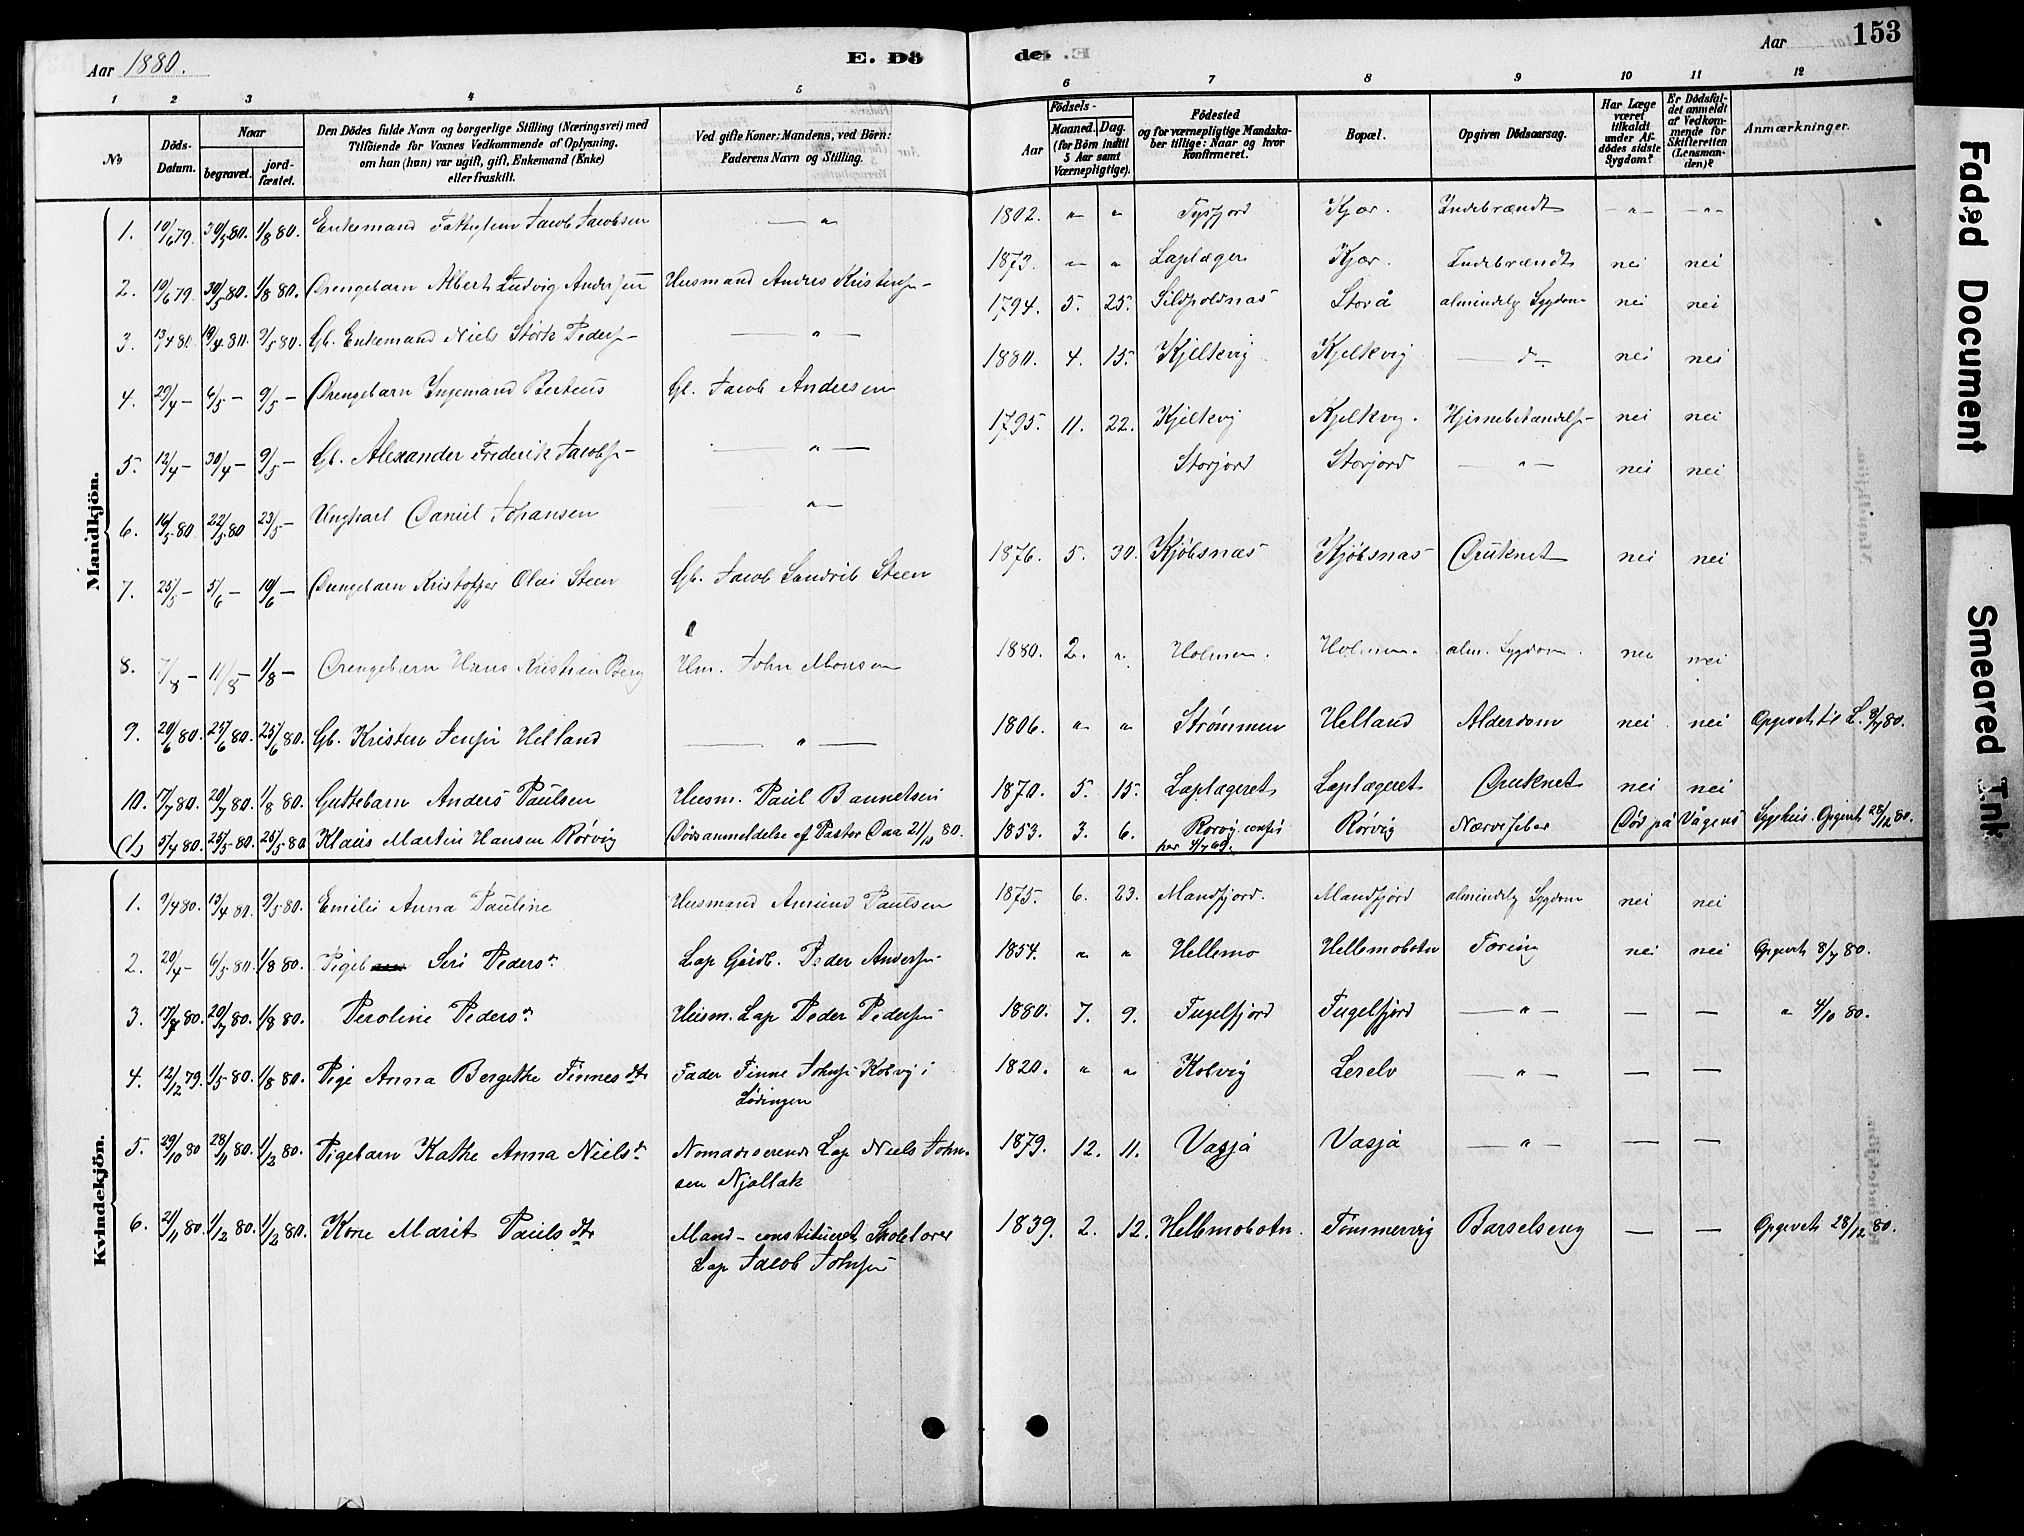 Aar 1880.
E. Dö
de.
Aar
153
1 2 3 4 5 6 7 8 9 10 11 12
No
Döds-Datum.
Naar
begravet.
jordfæstet.
Den Dödes fulde Navn og borgerlige Stilling (Næringsvei) med
Tilföiende for Voxnes Vedkommende af Oplysning,
om han (hun) var ugift, gift, Enkemand (Enke)
eller fraskilt.
Ved gifte Koner: Mandens, ved Börn:
Faderens Navn og Stilling.
Födsels-
Aar
Maaned. Dag.
(for Börn indtil
5 Aar samt
Værnepligtige).
Födested
og for værnepligtige Mandskaber tillige: Naar og hvor
Konfirmeret.
Bopæl.
Opgiven Dödsaarsag.
Har Læge
været
tilkaldt
under Afdödes sidste
Sygdom?
Er Dödsfaldet anmeldt
af Vedkommende for
Skifteretten
(Lensmanden)?
Anmærkninger.
Mandkjön.
1. 10/6 79. 30/5 80. 1/8 80. Enkemand Fattiglem Jacob Jacobsen — " 1802. " " Tysfjord Kjær. Indebrændt — " — — " —
2. 10/6 79. 30/5 80. 1/8 80. Drengebarn Albert Ludvig Andersen Husmand Andres Kristens- 1873. — " Laplæger Kjær. Indebrændt nei nei
3. 13/4 80. 19/4 80. 9/5 80. Gb. Enkemand Niels Störk Peders- — " — 1794. 5. 25. Sildpoldnæs Storå almindelig Sygdom nei nei
4. 29/4 — 6/5 — 9/5 — Drengebarn Ingemand Berteus Gb. Jacob Andersen 1880. 4. 15. Kjelkvig Kjelkvig — d — nei nei
5. 12/4 — 30/4 — 9/5 — Gb. Alexander Frederik Jacobs- — " — 1795. 11. 22. Kjelkvig Kjelkvig. Hjernebetændels- nei nei
6. 16/5 80. 22/5 80 23/5 — Ungkarl Daniel Johansen — " — Storjord Storjord — " — nei nei
7. 25/5 — 5/6 — 10/6 — Drengebarn Kristoffer Olai Steen Gb. Jacob Sandvik Steen 1876. 5. 30. Kjöbsnæs Kjöbsnæs Druknet nei nei
8. 7/8 — 11/8 — 1/8 — Drengebarn Hans Kristian Berg Hm. John Monsen 1880. 2. " Holmen. Holmen. alm. Sygdom. nei nei
9. 20/6 80. 25/6 80. 25/6 80. Gb. Kristen Jensen Helland — " — 1806. " " Strømmen Helland Alderdom nei nei Opgivet til L. 8/7 80.
10. 17/7 80. 20/7 80. 1/8 80. Guttebarn Anders Paulsen Husm. Paul Bannetsen 1870. 5. 15. Laplægeret Laplægeret Druknet nei nei
(1) 5/4 80. 25/5 80. 26/5 80 Klaus Martin Hansen Rørvig Dødsanmeldelse af Pastor Daa 21/10 80. 1853. 3. 6. Rørvig confir Rørvig Nervefeber Død på Vågens Sygehus. Opgivet 28/12 80.
her 4/7 69.
Kvindekjön.
1. 9/4 80. 13/4 80. 9/5 80. Emilie Anna Pauline Husmand Amund Paulsen 1875. 6. 23. Mandfjord. Mandfjord almindelig Sygdom nei nei
2. 20/4 — 6/5 80. 1/8 80. Pige Seri Peders. Lap Gårdb. Peder Anders- 1854. " " Hellemo Hellemobotn Tæring nei nei Opgivet 8/7 80.
3. 17/7 80. 20/7 80. 1/8 80. Peroline Peders. Husm. Lap Peder Peders- 1880. 7. 9. Fugelfjord Fugelfjord — " — — — " 4/10 80.
4. 12/12 79. 1/5 80. 1/8 80. Pige Anna Bergethe Finnes dtr Fader Finne Johns- Kolvig i 1820. " " Kolvig Lerelv — " — — —
Lødingen
5. 29/10 80 28/11 80. 1/12 80. Pigebarn Kathe Anna Niels. Nomadiserende Lap Niels John- 1879. 12. 11. Vasjà Vasjà — " — — —
sen Njallak
6. 21/11 80. 1/12 80. 1/12 80. Kone Marit Pauls dtr Mand - constitueret Skolelærer 1839. 2. 12. Hellemobotn. Tømmervig Barselseng — — Opgivet 28/12 80.
Lap Jacob Johns-
Faded Document
Smeared Ink